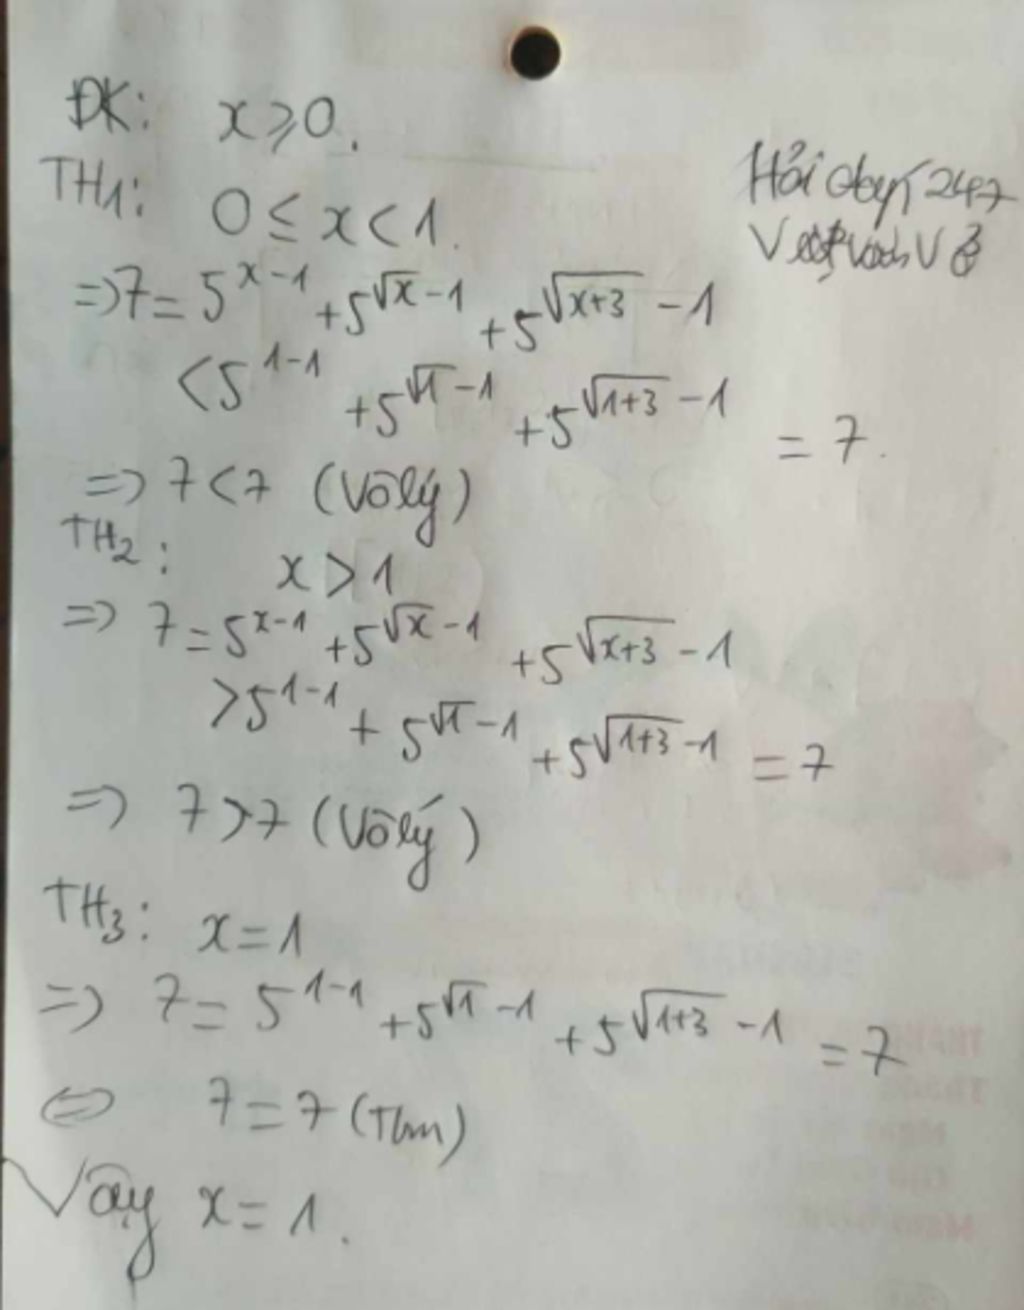 ĐK: x ≥ 0.
TH1: 0 ≤ x < 1.
=> 7 = 5^{x-1} + 5^{√x - 1} + 5^{√(x+3) - 1}
< 5^{1-1} + 5^{√1 - 1} + 5^{√(1+3) - 1} = 7.
=> 7 < 7 (Vô lý)
TH2: x > 1
=> 7 = 5^{x-1} + 5^{√x - 1} + 5^{√(x+3) - 1}
> 5^{1-1} + 5^{√1 - 1} + 5^{√(1+3) - 1} = 7
=> 7 > 7 (Vô lý)
TH3: x = 1
=> 7 = 5^{1-1} + 5^{√1 - 1} + 5^{√(1+3) - 1} = 7
<=> 7 = 7 (Tm)
Vậy x = 1.
Hỏi 247